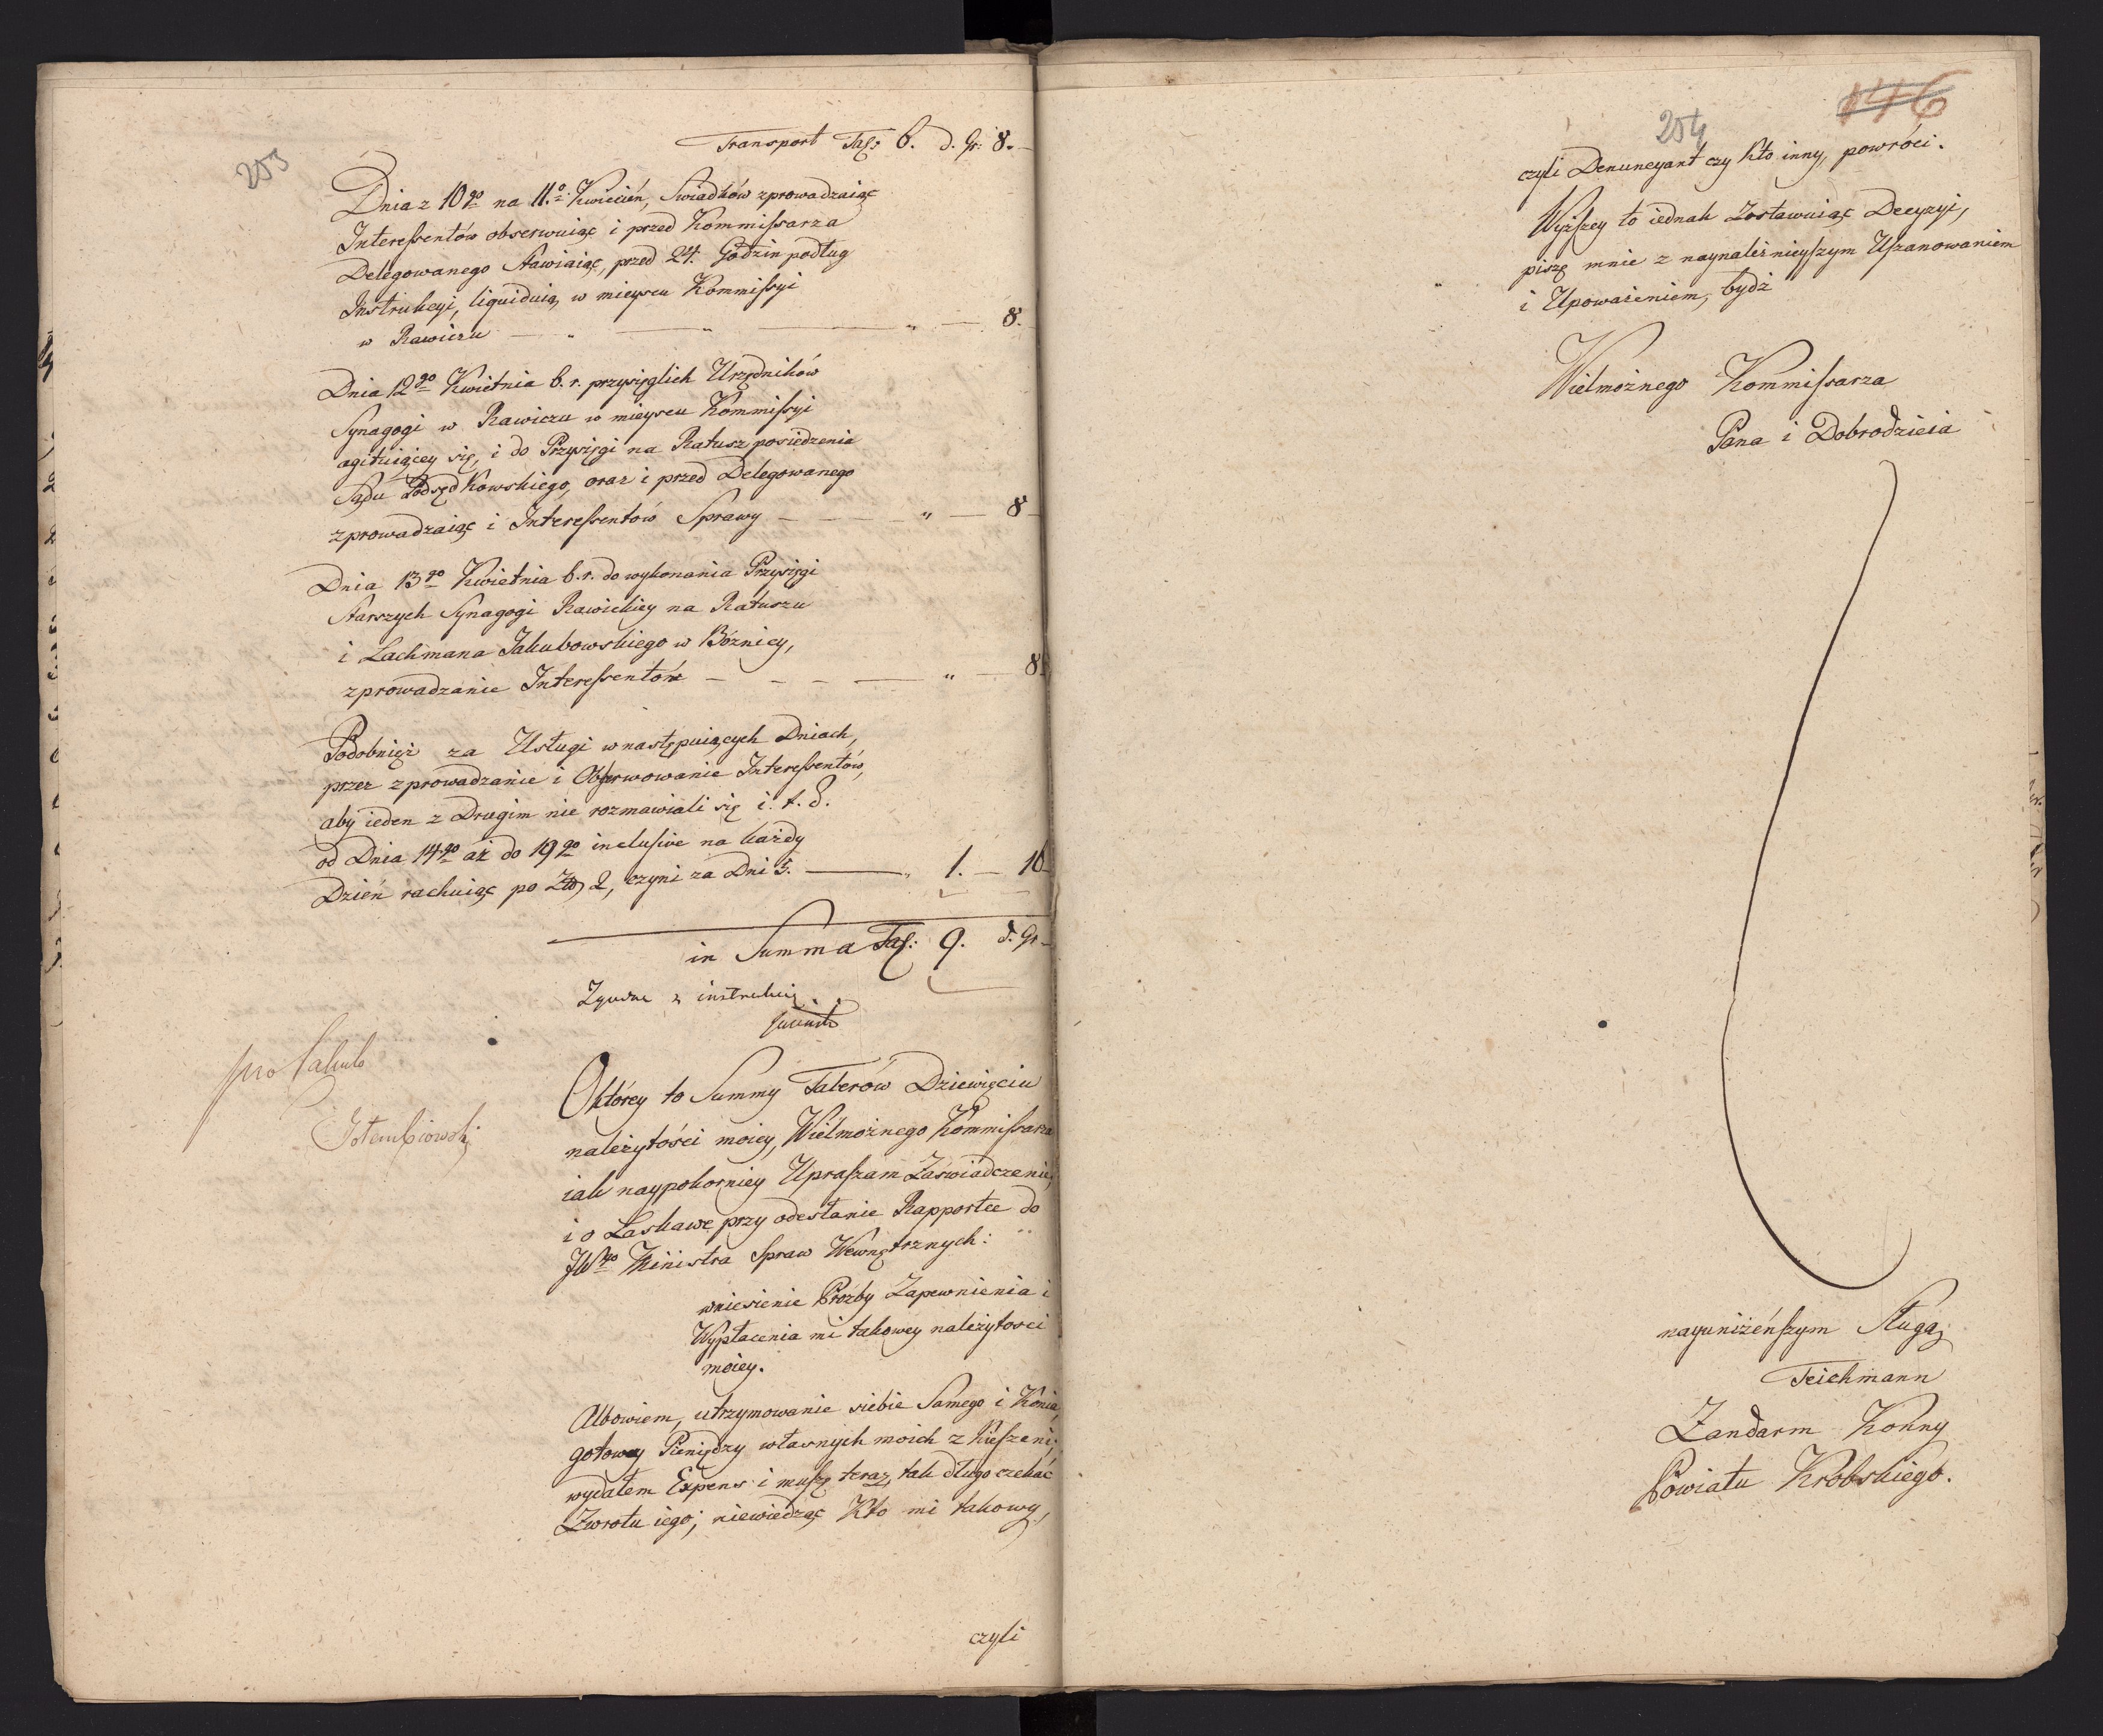 253
Transport Tal: 6. d. Gr: 8.
Dnia z 10go na 11.o Kwiecień, Swiadków zprowadzaiąc
Interessentów obserwuiąc i przed Kommissarza
Delegowanego stawiaiąc, przed 24. Godzin podług
Instrukcyi, liquiduią w mieyscu Kommissyi
w Rawiczu — „ — „ — „ — 8.
Dnia 12go Kwietnia b. r. przysięglich Urzędników
Synagogi w Rawiczu w mieyscu Kommissyi
agituiącey się, i do Przysięgi na Ratusz posiedzenia
Sądu Podsędkowskiego, oraz i przed Delegowanego
zprowadzaiąc i Interessentów Sprawy — — — „ — 8 —
Dnia 13go Kwietnia b. r. do wykonania Przysięgi
starszych Synagogi Rawickiey na Ratuszu
i Lachmana Jakubowskiego w Bóznicy,
zprowadzanie Interessentów — — — — „ — 8
Podobnież za Usługi w następuiących Dniach,
przez zprowadzanie i Obserwowanie Interessentów,
aby ieden z Drugim nie rozmawiali się i. t. d.
od Dnia 14go aż do 19go inclusive na każdy
Dzień rachuiąc po Zło 2, czyni za Dni 5. — „ 1. — 16
in Summa Tal: 9. d. Gr —
Zgodne z instrukcią
pro Calculo
Gołembiowski
O którey to Summy Talerów Dziewięciu
należytości moiey, Wielmożnego Kommissarza
iak naypokorniey Upraszam Zaświadczenie,
i o Łaskawe przy odesłanie Rapportu do
JWgo Ministra Spraw Wewnętrznych:
wniesienie Prozby Zapewnienia i
Wypłacenia mi takowey należytosci
moiey.
Albowiem, utrzymowanie siebie Samego i Konia,
gotowey Pieniędzy własnych moich z Kieszeni,
wydałem Expens i muszę teraz, tak długo czekać
Zwrotu iego; niewiedząc Kto mi takowy,
czyli
146
254
czyli Denuncyant czy Kto inny, powróci.
Wyższey to iednak Zostawuiąc Decyzyi,
piszę mnie z naynależnieyszym Uszanowaniem
i Upoważeniem, bydź
Wielmożnego Kommissarza
Pana i Dobrodzieia
nayuniżeńszym Sługą
Teichmann
Zandarm Konny
Powiatu Krobskiego.